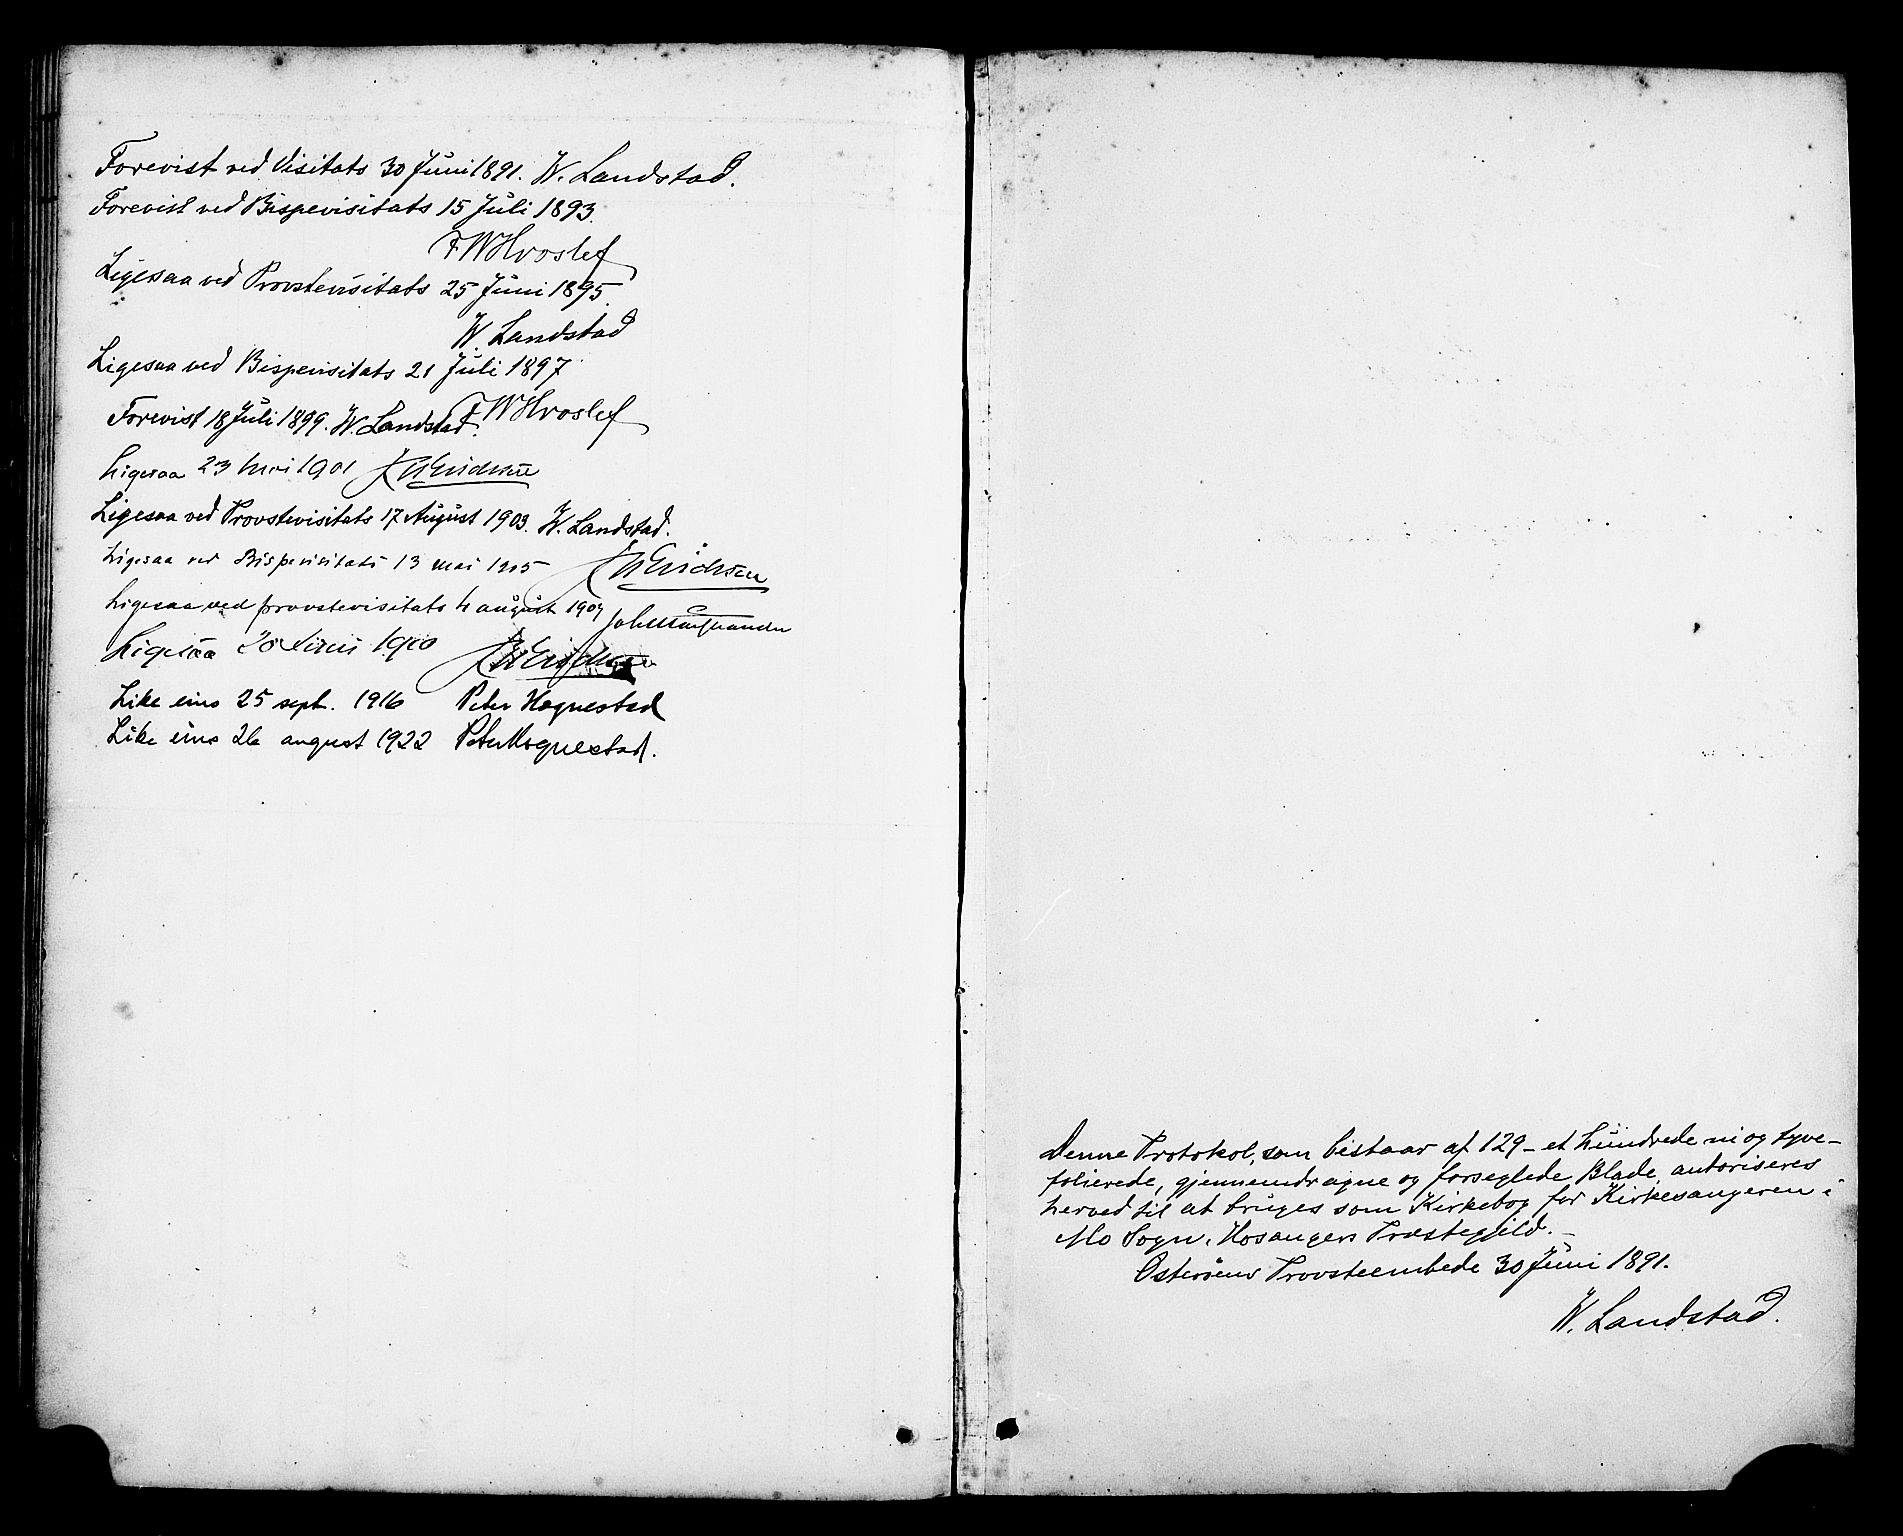 Forevist ved Visitats 30 Juni 1891. W. Landstad.
Forevist ved Bispevisitats 15 Juli 1893.
F W Hvoslef
Ligesaa ved Provstevisitats 25 Juni 1895.
W. Landstad
Ligesaa ved Bispevisitats 21 Juli 1897
F W Hvoslef
Forevist 18 Juli 1899. W. Landstad.
Ligesaa 23 Mai 1901 Erichsen
Ligesaa ved Provstevisitats 17 August 1903. W. Landstad.
Ligesaa ved Bispevisitats 13 mai 1905 Erichsen
Ligesaa ved provstevisitats 4 august 1907
Ligesaa Juni 1910 Erichsen
Like eins 25 sept. 1916 Peter Hognestad
Like eins 26 august 1922 Peter Hognestad.
Denne Protokol, som bestaar af 129 – et hundrede ni og tyve –
folierede, gjennemdragne og forseglede Blade, autoriseres
herved til at bruges som Kirkebog for Kirkesangeren i
Mo Sogn, Hosangers Præstegjeld. –
Osterøens Provsteembede 30 Juni 1891.
W. Landstad.